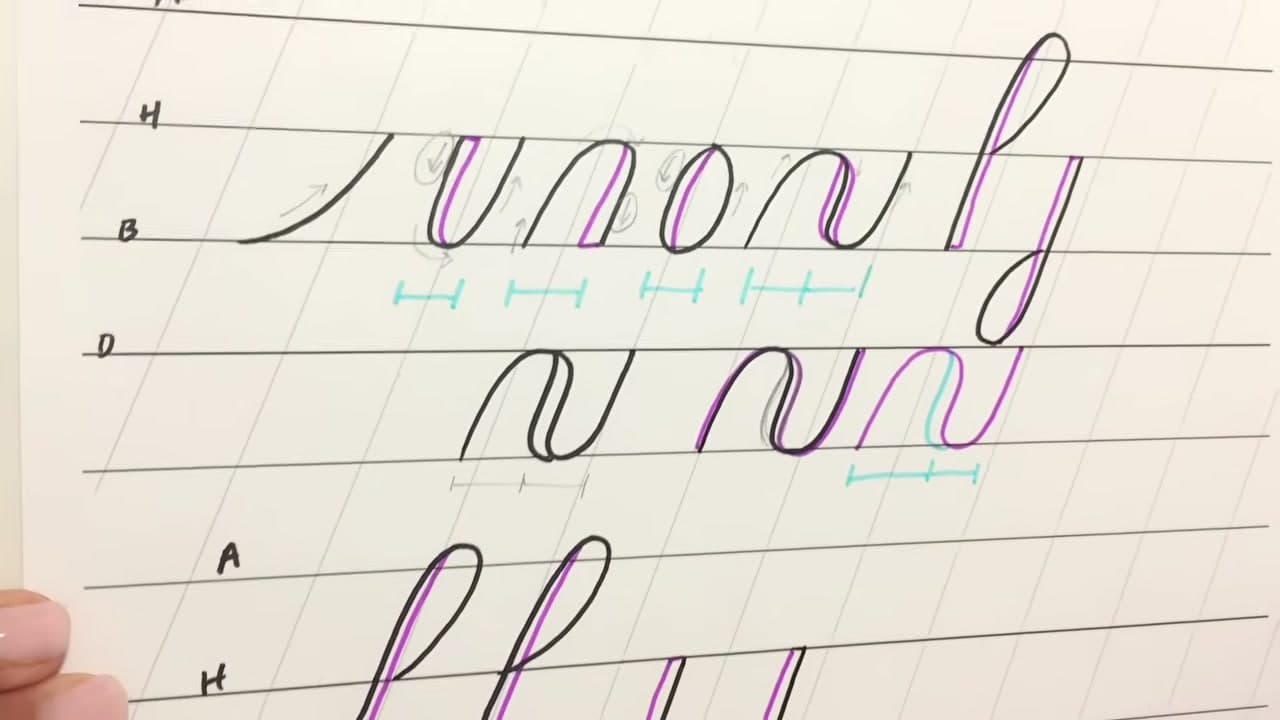 H
B
D
A
H